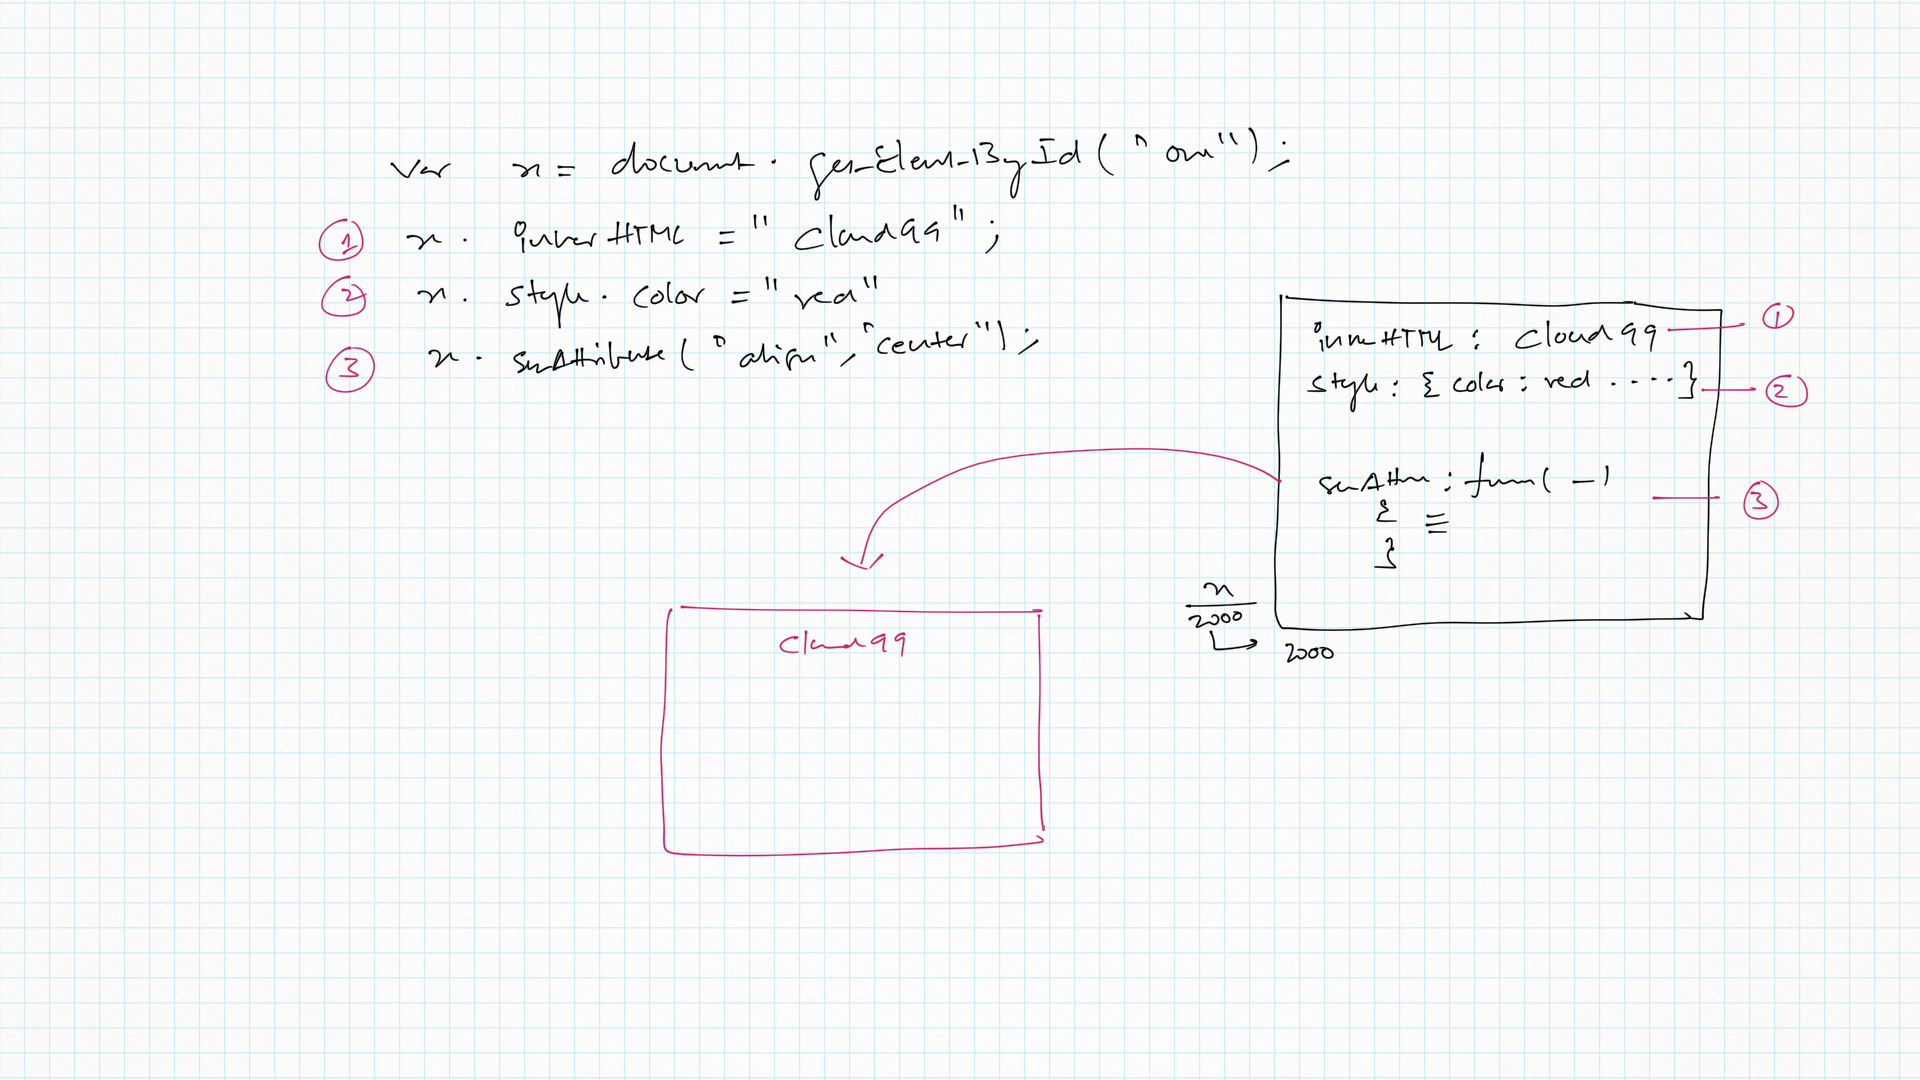 var x = document. getElementById("one");
① x. innerHTML = "cloud99";
② x. style. color = "red"
③ x. setAttribute("align","center");
innerHTML: cloud99 ①
style: { color: red ....} ②
setAttr: fun( - ) ③
{ ≡
}
x
2000
2000
cloud99